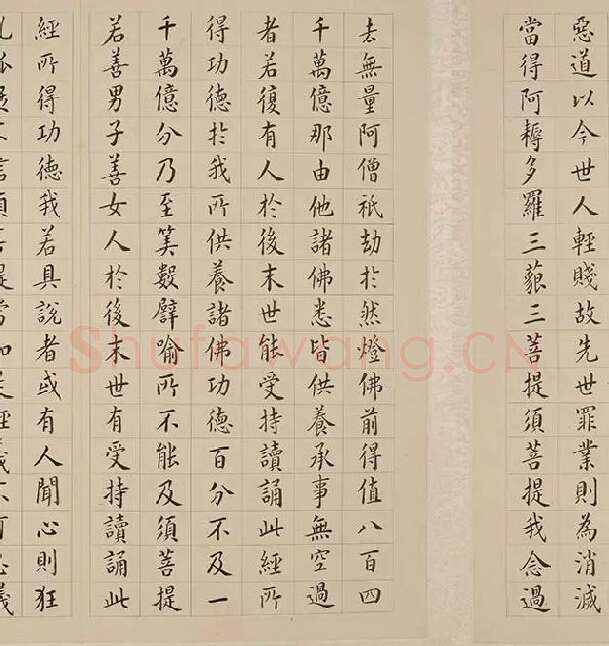 惡道以今世人輕賤故先世罪業則為消滅
當得阿耨多羅三藐三菩提須菩提我念過
去無量阿僧祇劫於然燈佛前得值八百四
千萬億那由他諸佛悉皆供養承事無空過
者若復有人於後末世能受持讀誦此經所
得功德於我所供養諸佛功德百分不及一
千萬億分乃至筭數譬喻所不能及須菩提
若善男子善女人於後末世有受持讀誦此
經所得功德我若具說者或有人聞心則狂
Shufawang.CN